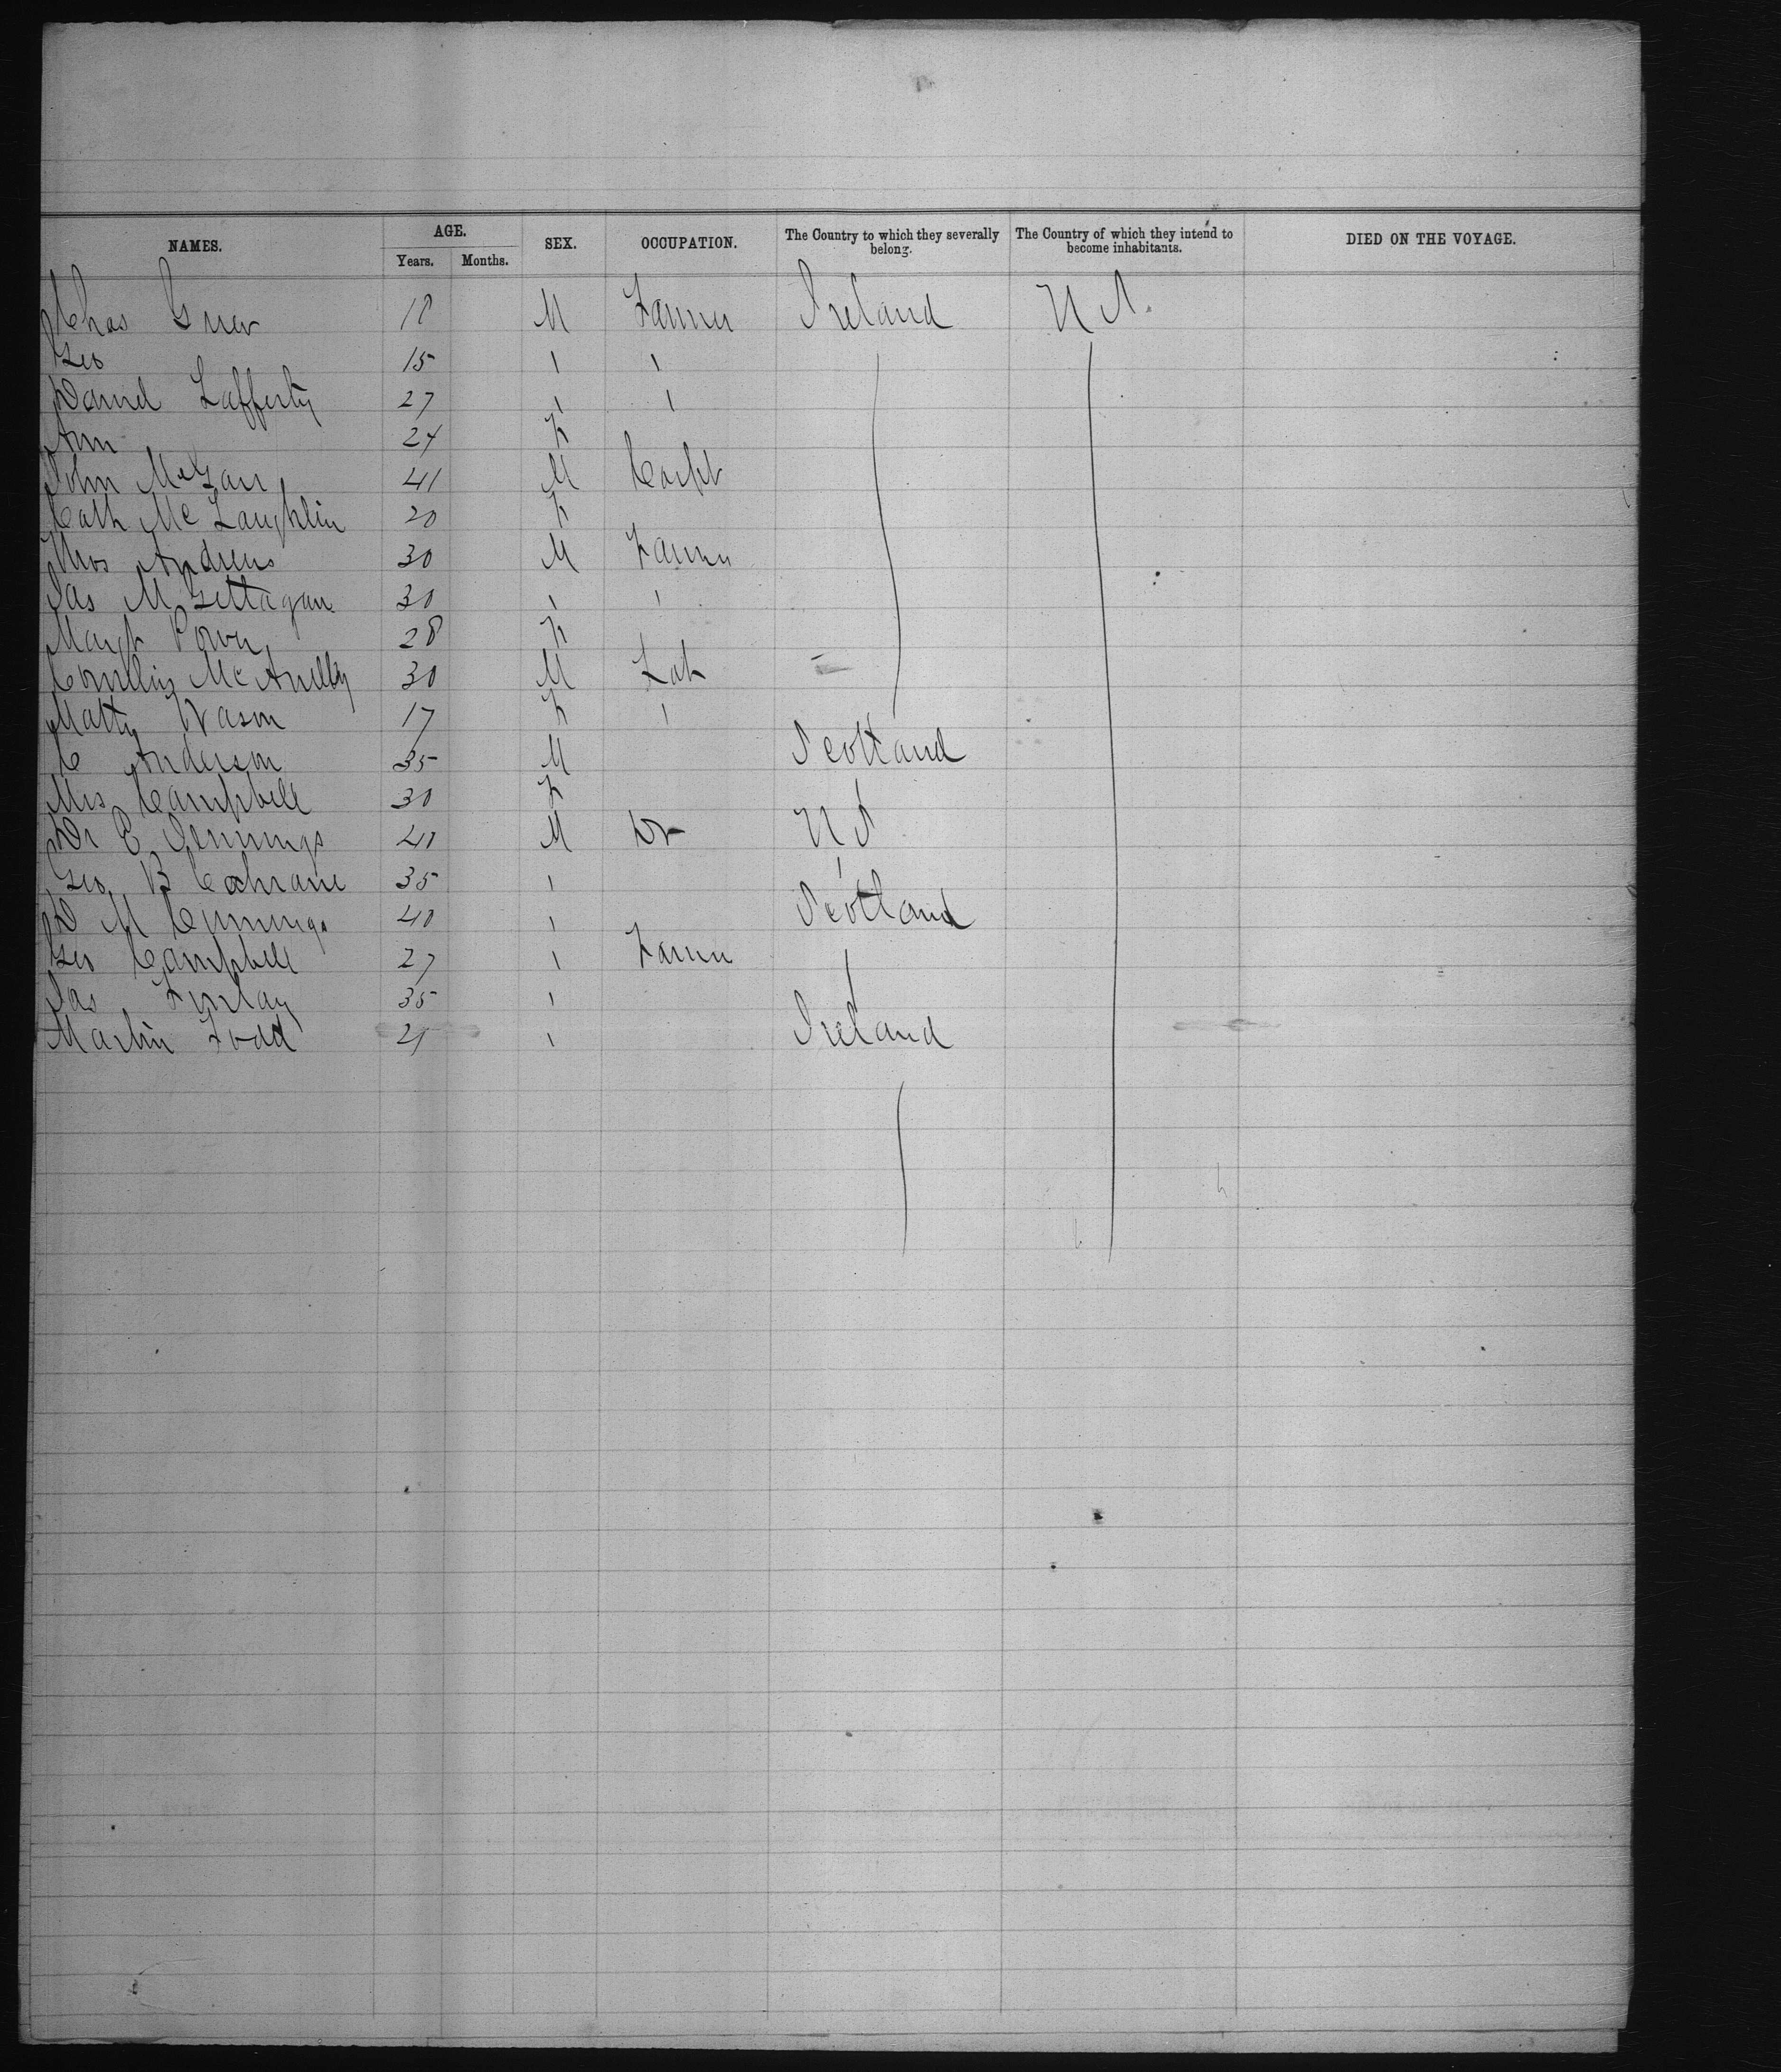 NAMES. AGE. SEX. OCCUPATION. The Country to which they severally belong. The Country of which they intend to become inhabitants. DIED ON THE VOYAGE.
Years. Months.
Chas Greer 18 M Farmer Ireland U S.
Geo 15 " "
Daniel Lafferty 27 " "
Ann 24 F
John McGarr 41 M Carpt
Cath Mc Laughlin 20 F
Thos Andrews 30 M Farmer
Jas 30 " "
Margt Power 28 F
Cornelius Mc 30 M Lab
Matty Wason 17 F "
C Anderson 35 M Scotland
Mrs Campbell 30 F "
Dr C Jennings 40 M Dr U S
Geo B Cochrane 35 " "
D M Cummings 40 " Scotland
Geo Campbell 27 " Farmer "
Jas Finlay 35 " "
Martin Todd 21 " Ireland